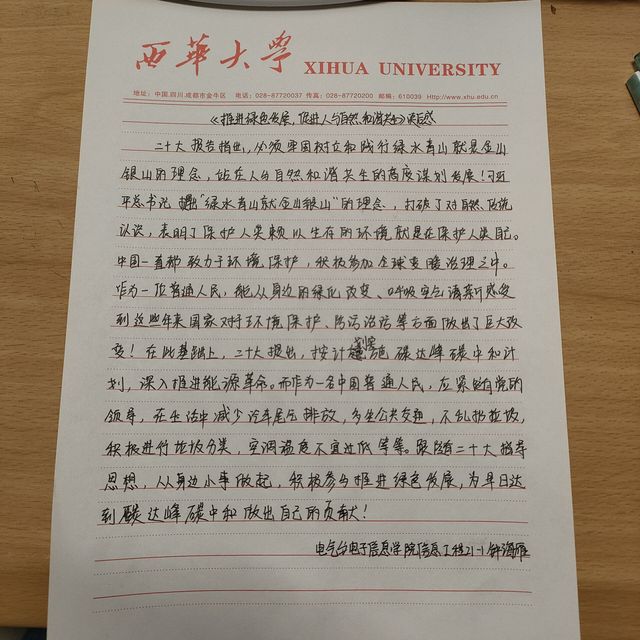 西華大學 XIHUA UNIVERSITY
地址：中国.四川.成都市金牛区 电话：028-87720037 传真：028-87720200 邮编：610039 Http://www.xhu.edu.cn
《推进绿色发展，促进人与自然和谐共生》读后感
二十大报告指出，必须牢固树立和践行绿水青山就是金山
银山的理念，站在人与自然和谐共生的高度谋划发展！习近
平总书记提出“绿水青山就金山银山”的理念，打破了对自然传统
认识，表明了保护人类赖以生存的环境就是在保护人类自己。
中国一直都致力于环境保护，积极参加全球变暖治理之中。
作为一位普通人民，能从身边的绿化改变、呼吸空气清新感受
到这些年来国家对于环境保护、防污治污等方面做出了巨大改
变！在此基础上，二十大提出，按计划实施碳达峰碳中和计
划，深入推进能源革命。而作为一名中国普通人民，应紧随党的
领导，在生活中减少汽车尾气排放，多坐公共交通，不乱扔垃圾，
积极进行垃圾分类，空调温度不宜过低等等。跟随二十大指导
思想，从身边小事做起，积极参与推进绿色发展，为早日达
到碳达峰碳中和做出自己的贡献！
电气与电子信息学院信息工程21-1 钟海雁